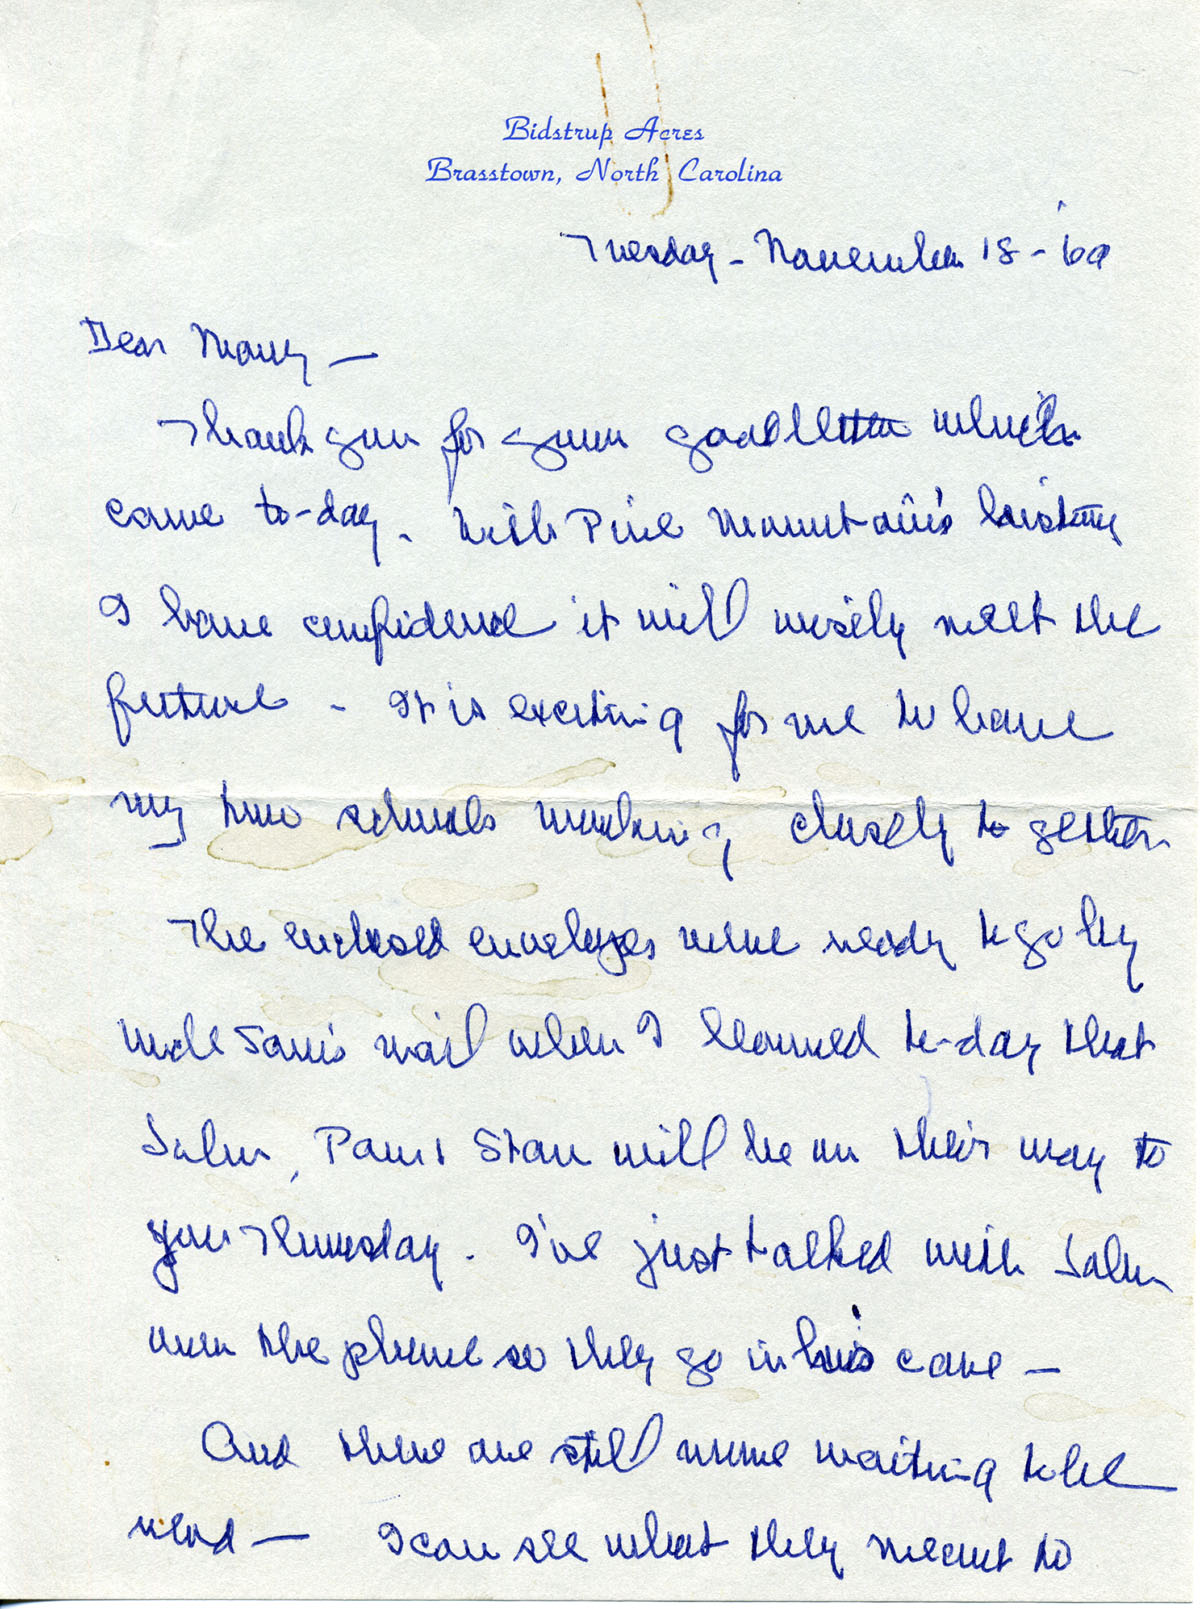 Bidstrup Acres
Brasstown, North Carolina
Tuesday - November 18 - '69
Dear Mary —
Thank you for your good letter which
came to-day. With Pine Mountain's history
I have confidence it will wisely meet the
future - It is exciting for me to have
my two schools working closely together
The enclosed envelopes were ready to go by
Uncle Sam's mail when I learned to-day that
John, Pam & Stan will be on their way to
you Thursday. I've just talked with John
over the phone so they go in his care —
And there are still more waiting to be
read — I can see what they meant to